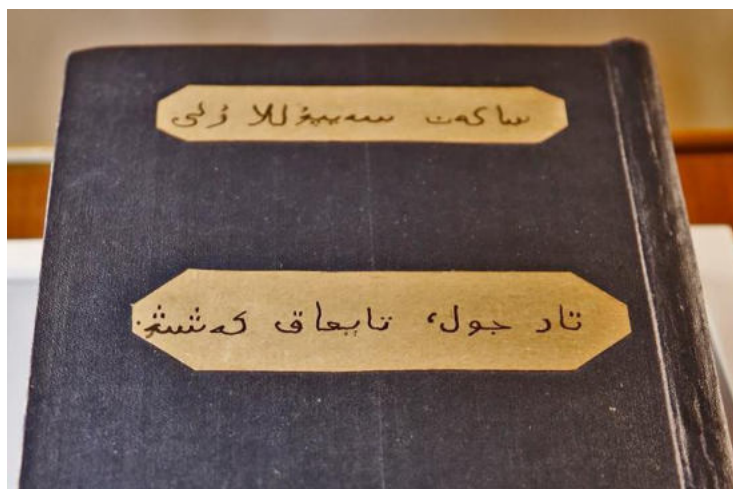 ساكەن سەيپۋللا ۇلى
تار جول، تايعاق كەشۋ